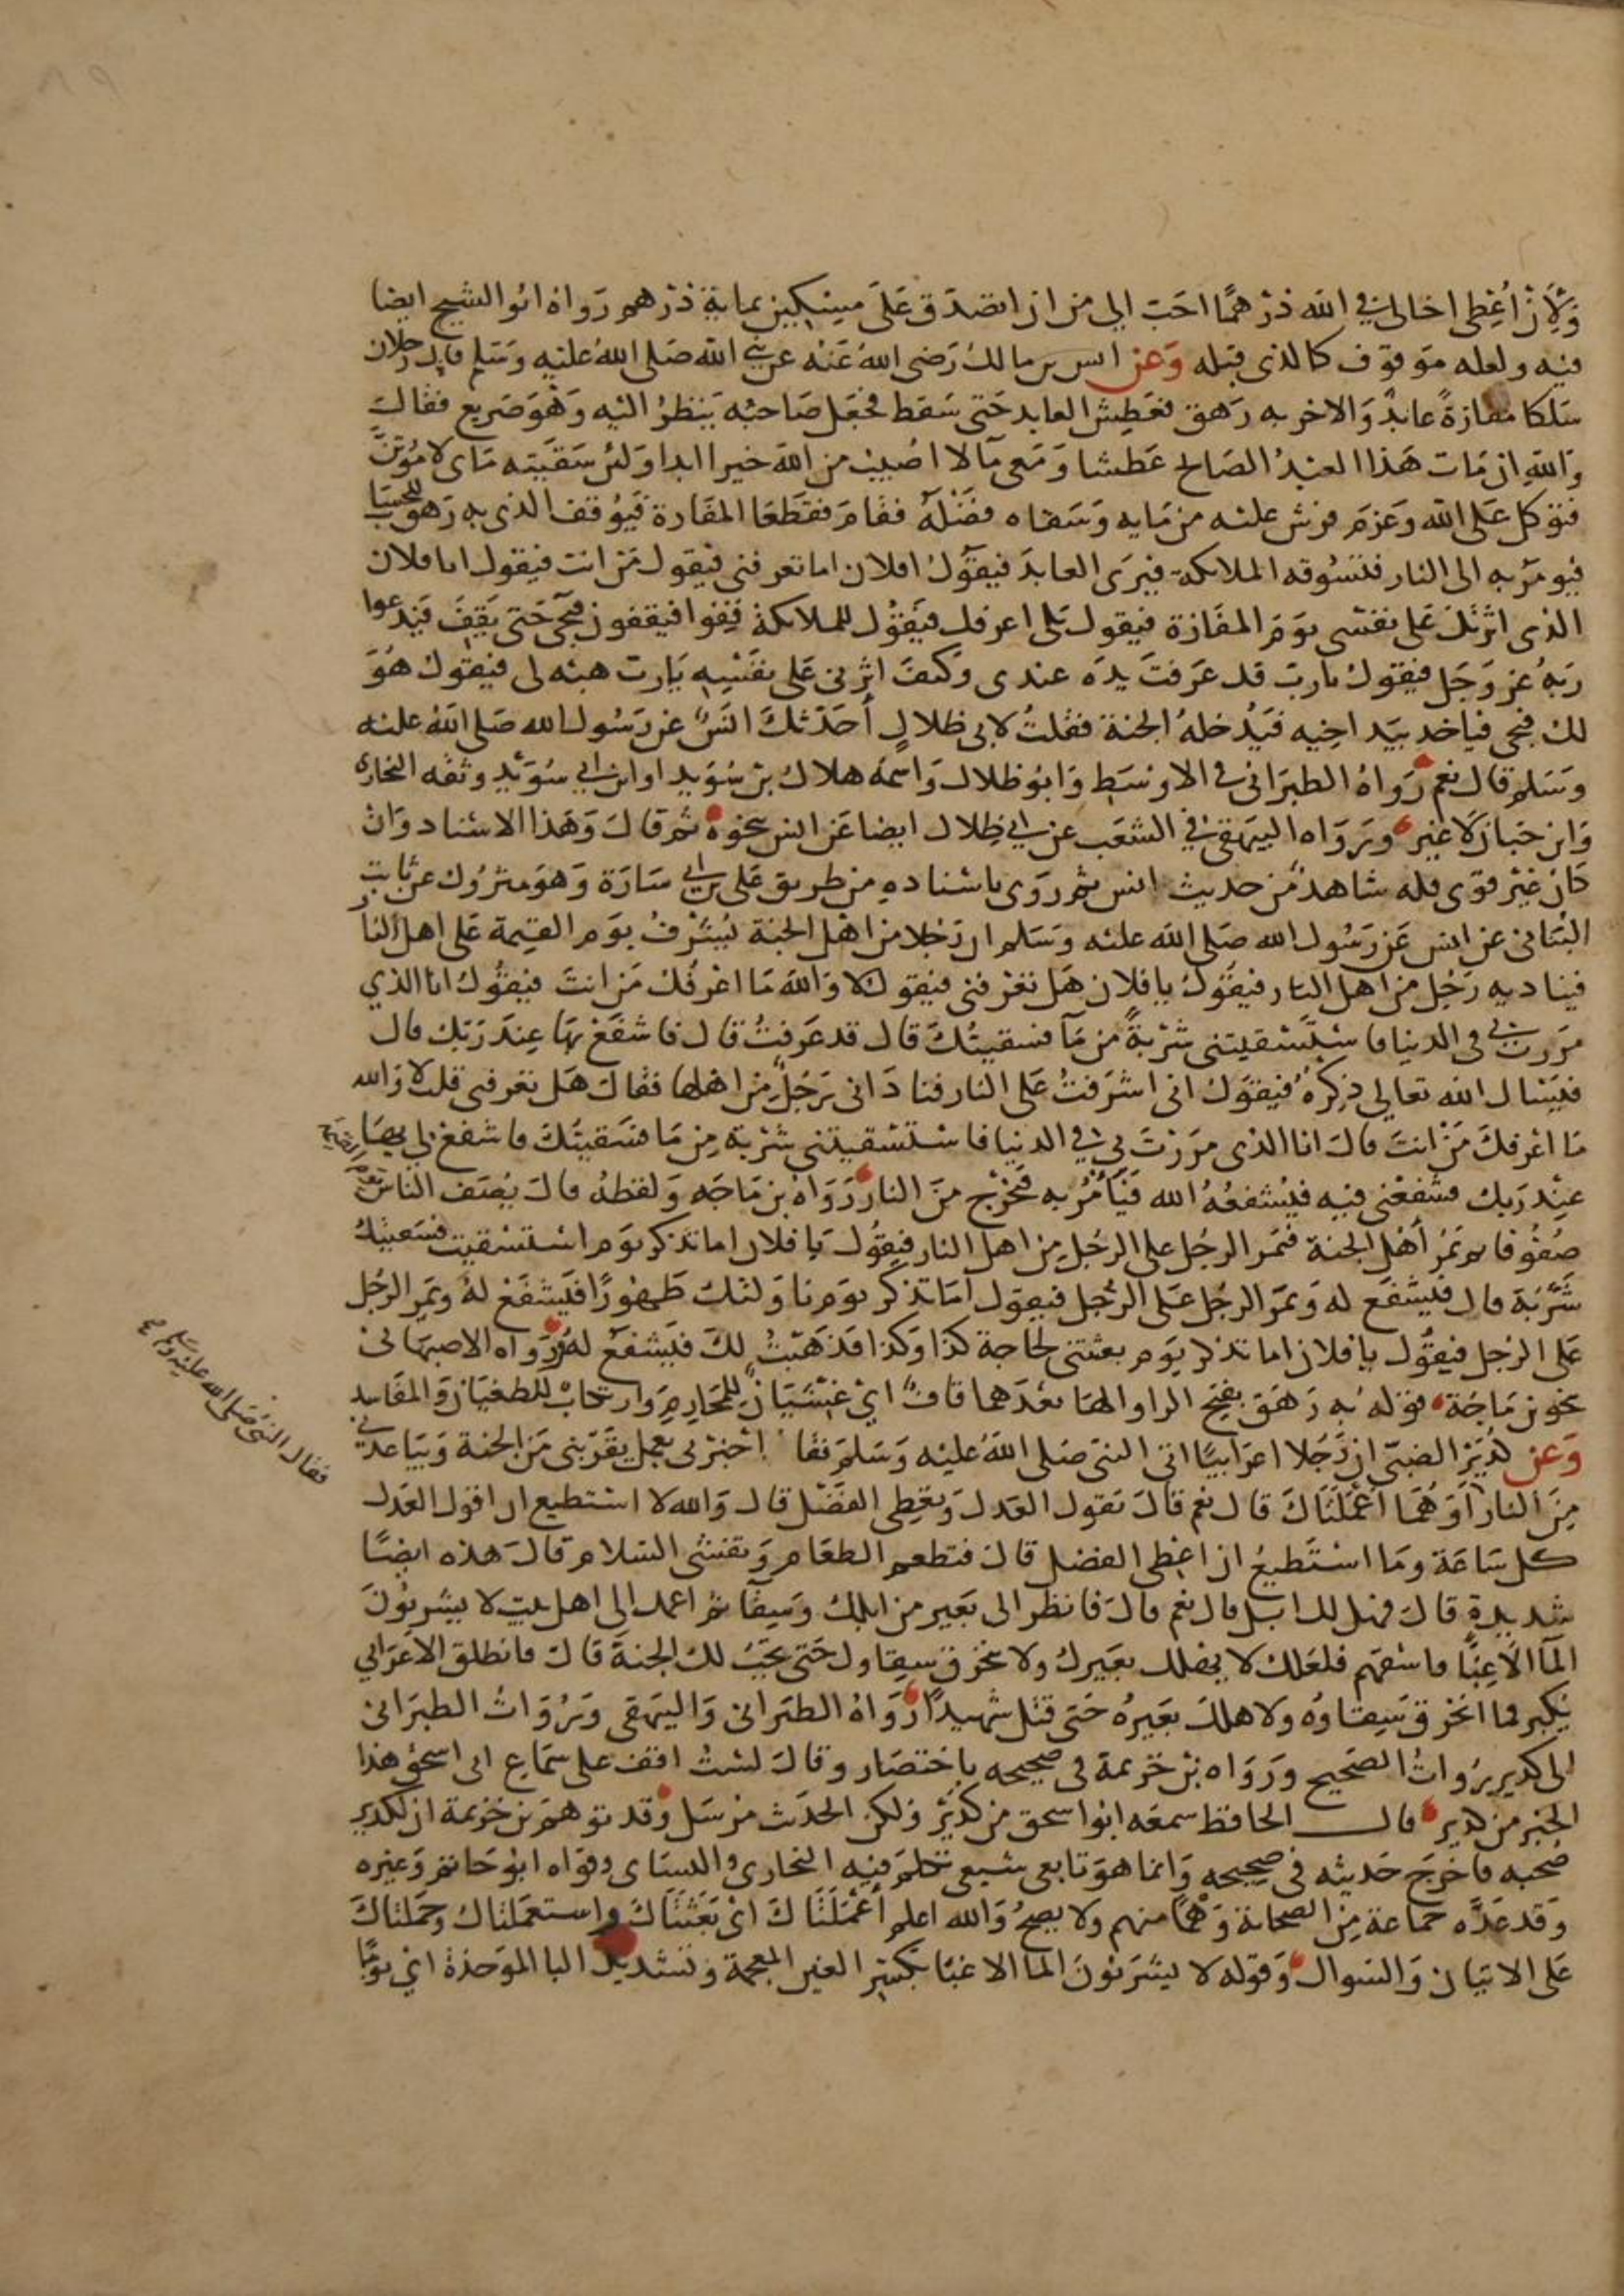 ولأن أعطى اخا لى فى الله درهما احب الى من ان اتصدق على مسكين بماية درهم رواه ابو الشيخ ايضا
فيه ولعله موقوف كالذى قبله وعن انس بن مالك رضى الله عنه عن نبى الله صلى الله عليه وسلم قال رجلان
سلكا مفازة عابد والاخر به رهق فعطش العابد حتى سقط فجعل صاحبه ينظر اليه وهو صريع فقال
والله ان مات هذا العبد الصالح عطشا ومعى ما لا اصيب من الله خيرا ابدا ولئن سقيته ماى لاموتن
فتوكل على الله وعزم فرش عليه من مايه وسقاه فضله فقام فقطعا المفازة فيوقف الذى به رهق للحساب
فيومر به الى النار فتسوقه الملائكة فيرى العابد فيقول افلان اما تعرفنى فيقول من انت فيقول انا فلان
الذى اثرتك على نفسى يوم المفازة فيقول بلى اعرفك فيقول للملائكة قفوا فيقفون فيجى حتى يقف فيدعوا
ربه عز وجل فيقول يا رب قد عرفت يده عندى وكيف اثرنى على نفسه يا رب هبه لى فيقول هو
لك فيجى فياخذ بيد اخيه فيدخله الجنة فقلت لابى ظلال أحدثك انس عن رسول الله صلى الله عليه
وسلم قال نعم رواه الطبرانى فى الاوسط وابو ظلال واسمه هلال بن سويد او ابن ابى سويد وثقه البخارى
وابن حبان لا غير ورواه البيهقى فى الشعب عن ابى ظلال ايضا عن انس بنحوه ثم قال وهذا الاسناد وان
كان غير قوى فله شاهد من حديث انس ثم روى باسناده من طريق على بن ابى سارة وهو متروك عن ثابت
البنانى عن انس عن رسول الله صلى الله عليه وسلم ان رجلا من اهل الجنة يشرف يوم القيمة على اهل النار
فيناديه رجل من اهل النار فيقول يا فلان هل تعرفنى فيقول لا والله ما اعرفك من انت فيقول انا الذي
مررت بى فى الدنيا فاستسقيتنى شربة من مآ فسقيتك قال قد عرفت قال فاشفع بها عند ربك قال
فيسال الله تعالى ذكره فيقول انى اشرفت على النار فنادانى رجل من اهلها فقال هل تعرفنى قلت لا والله
ما اعرفك من انت قال انا الذى مررت بى فى الدنيا فاستسقيتنى شربة من ما فسقيتك فاشفع لى بها
عند ربك فشفعنى فيه فيشفعه الله فيأمر به فيخرج من النار رواه بن ماجه ولفظه قال يصف الناس يوم القيمة
صفوفا ثم تمر أهل الجنة فيمر الرجل على الرجل من اهل النار فيقول يا فلان اما تذكر يوم استسقيت فسقيتك
شربة قال فيشفع له ويمر الرجل على الرجل فيقول اما تذكر يوم ناولتك طهورا فيشفع له ويمر الرجل
على الرجل فيقول يا فلان اما تذكر يوم بعثتنى لحاجة كذا وكذا فذهبت لك فيشفع له ورواه الاصبهانى
بنحو بن ماجة قوله به رهق بفتح الراو الها بعدهما قاف اى غشيان للمحارم وارتكاب للطغيان والمفاسد
وعن كدير الضبى ان رجلا اعرابيا اتى النبى صلى الله عليه وسلم فقال اخبرنى بعمل يقربنى من الجنة ويباعدنى
من النار أو هما أعملتاك قال نعم قال تقول العدل وتعطى الفضل قال والله لا استطيع ان اقول العدل
كل ساعة وما استطيع ان اعطى الفضل قال فتطعم الطعام وتفشى السلام قال هذه ايضا
شديدة قال فهل لك ابل قال نعم قال فانظر الى بعير من ابلك وسقآ ثم اعمد الى اهل بيت لا يشربون
المآ الا غبا فاسقهم فلعلك لا يهلك بعيرك ولا ينخرق سقاوك حتى تجب لك الجنة قال فانطلق الاعرابي
يكبر فما انخرق سقاوه ولا هلك بعيره حتى قتل شهيدا رواه الطبرانى والبيهقى ورواة الطبرانى
الى كدير رواة الصحيح ورواه بن خزيمة فى صحيحه باختصار وقال لست اقف على سماع ابى اسحق هذا
الخبر من كدير قال الحافظ سمعه ابو اسحق من كدير ولكن الحديث مرسل وقد توهم بن خزيمة ان لكدير
صحبه فاخرج حديثه فى صحيحه وانما هو تابعى شيعى تكلم فيه البخارى والنساى وقواه ابو حاتم وغيره
وقد عده جماعة من الصحابة وهما منهم ولا يصح والله اعلم أعملتاك اى بعثتاك واستعملتاك وحملتاك
على الاتيان والسوال وقوله لا يشربون الما الا غبا بكسر الغين المعجمة وتشديد البا الموحدة اى يوما
فقال النبى صلى الله عليه وسلم